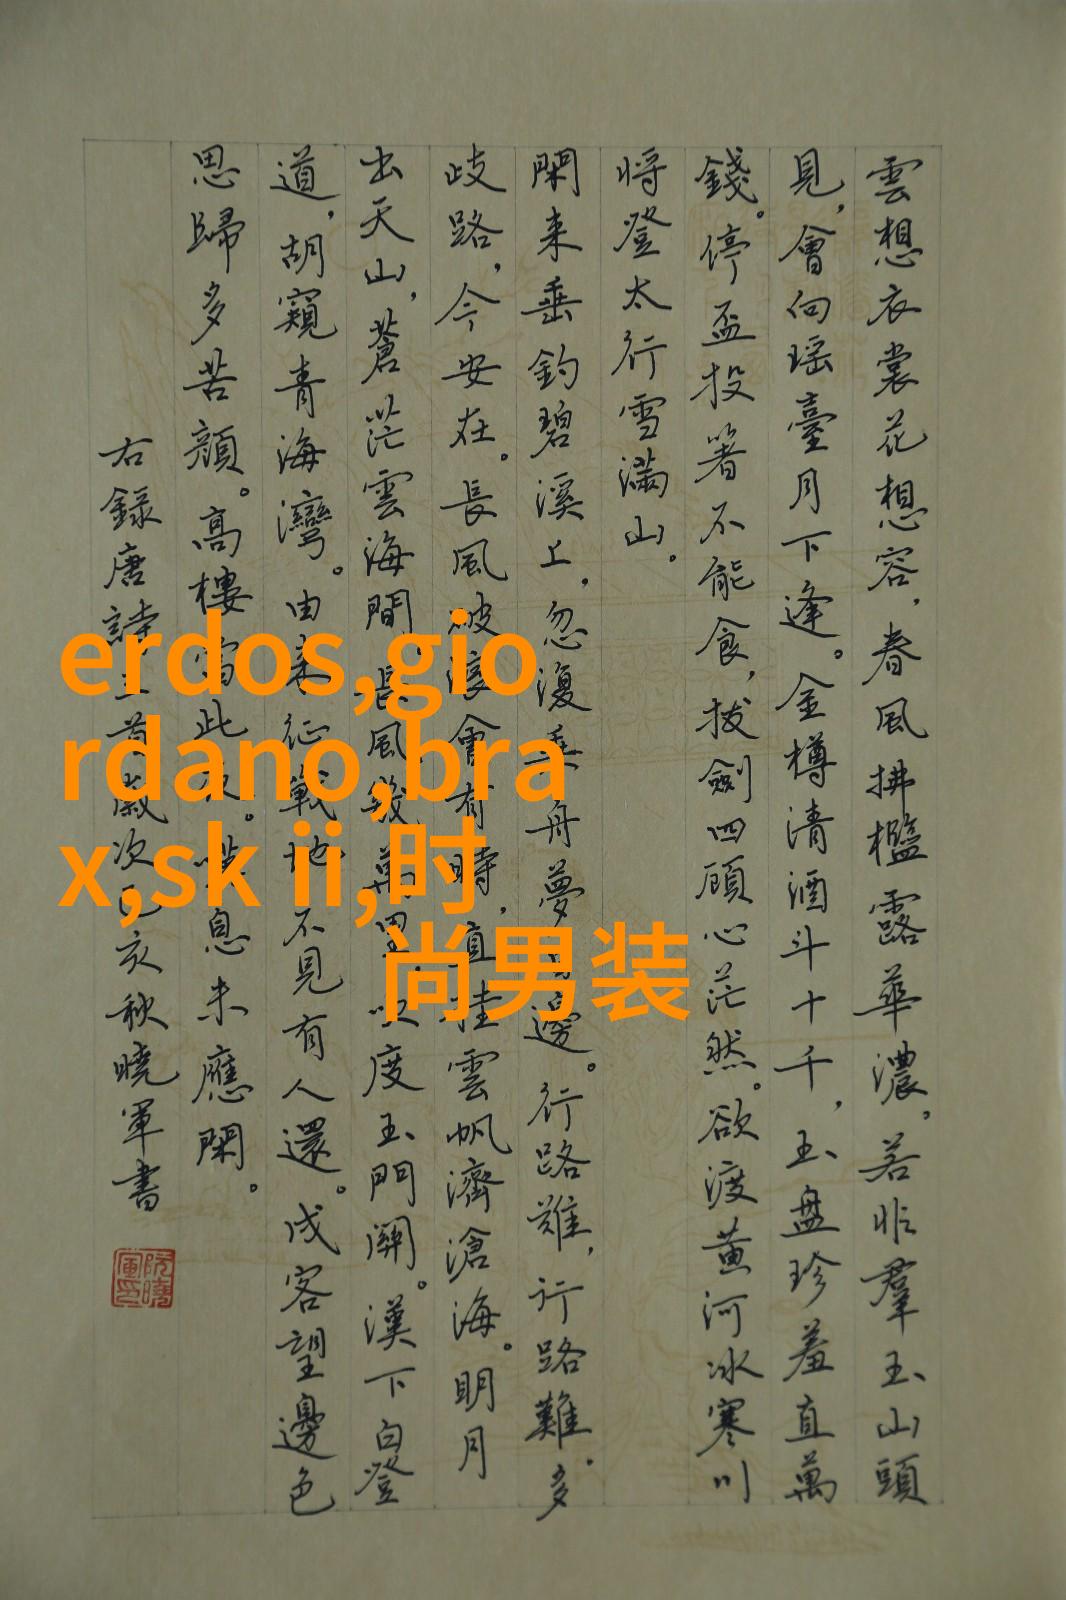 雲想衣裳花想容，春風拂檻露華濃。若非羣玉山頭
見，會向瑶臺月下逢。金樽清酒斗十千，玉盤珍羞直萬
錢。停盃投箸不能食，拔劍四顧心茫然。欲渡黄河冰寒川
将登太行雪滿山。
閑来垂釣碧溪上，忽復乘舟夢日邊。行路難，行路難。多
歧路，今安在。長風破浪會有時，直挂雲帆濟滄海。明月
出天山，蒼茫雲海間。長風幾萬里，吹度玉門關。漢下白登
道，胡窺青海灣。由来征戰地，不見有人還。戍客望邊色
思歸多苦顔。高樓當此夜。嘆息未應閑。
右録唐詩三首歲次己亥秋曉軍書
阮曉軍印
erdos,gio
rdano,bra
x,sk ii,时
尚男装